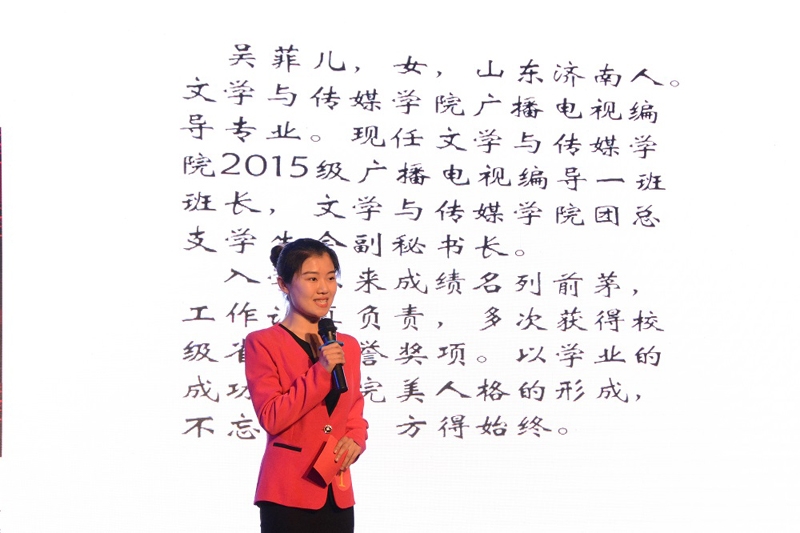 吴菲儿，女，山东济南人。
文学与传媒学院广播电视编
导专业。现任文学与传媒学
院2015级广播电视编导一班
班长，文学与传媒学院团总
支学 会副秘书长。
入 来成绩名列前茅，
工作 负责，多次获得校
级省 誉奖项。以学业的
成功 完美人格的形成，
不忘 方得始终。